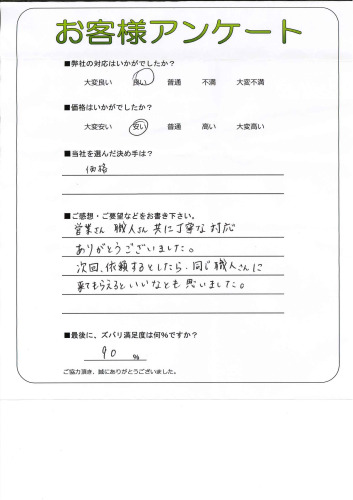 お客様アンケート
■弊社の対応はいかがでしたか？
大変良い 良い 普通 不満 大変不満
■価格はいかがでしたか？
大変安い 安い 普通 高い 大変高い
■当社を選んだ決め手は？
価格
■ご感想・ご要望などをお書き下さい。
営業さん 職人さん 共に丁寧な対応
ありがとうございました。
次回、依頼するとしたら、同じ職人さんに
来てもらえるといいなとも思いました。
■最後に、ズバリ満足度は何%ですか？
90 %
ご協力頂き、誠にありがとうございました。